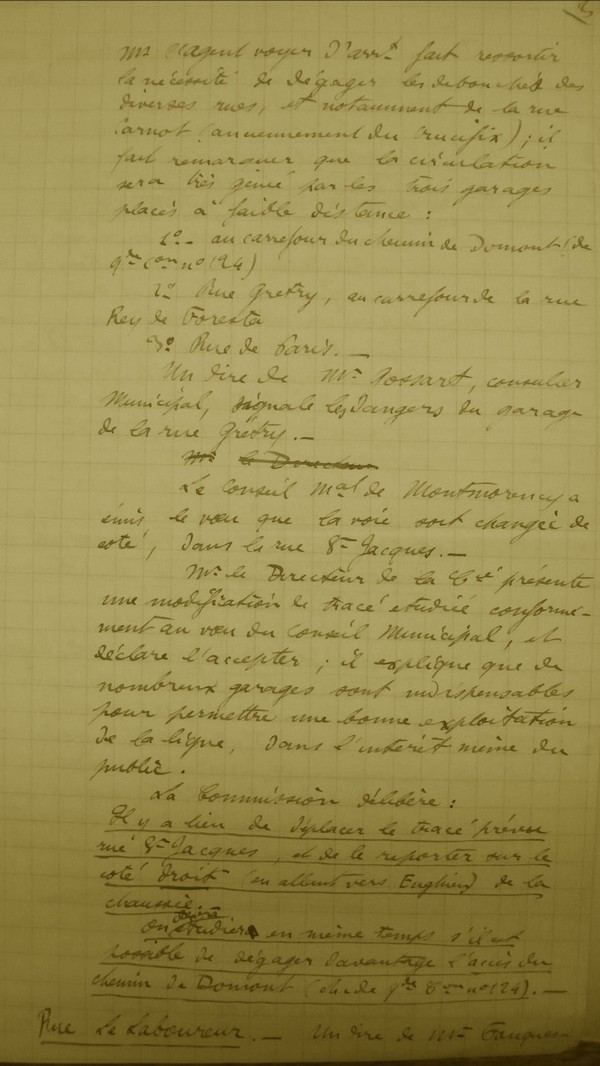 Mr l'agent voyer d'arrt fait ressortir
la nécessité de dégager les debouchés des
diverses rues, et notamment de la rue
Carnot (anciennement du Crucifix) ; il
fait remarquer que la circulation
sera très génée par les trois garages
placés à faible distance :
1o- au carrefour du chemin de Domont (de
gde Con no 124)
2o Rue Gretry, au carrefour de la rue
Rey de Foresta
3o Rue de Paris. —
Un dire de Mr Possart, conseiller
Municipal, signale les dangers du garage
de la rue Gretry. —
Mr le Directeur
Le Conseil Mal de Montmorency a
émis le vœu que la voie soit changée de
coté, dans la rue St Jacques. —
Mr le Directeur de la Cie présente
une modification de tracé etudiée conformé-
ment au vœu du Conseil Municipal, et
déclare l'accepter ; il explique que de
nombreux garages sont indispensables
pour permettre une bonne exploitation
de la ligne, dans l'intérêt même du
public.
La Commission délibère :
Il y a lieu de déplacer le tracé prévu
rue St Jacques, et de le reporter sur le
coté droit (en allant vers Enghien) de la
chaussée.
On devra étudier en même temps s'il est
possible de dégager davantage l'accès du
chemin de Domont (ch. de gde Con no 124). —
Rue Le Laboureur. — Un dire de Mr